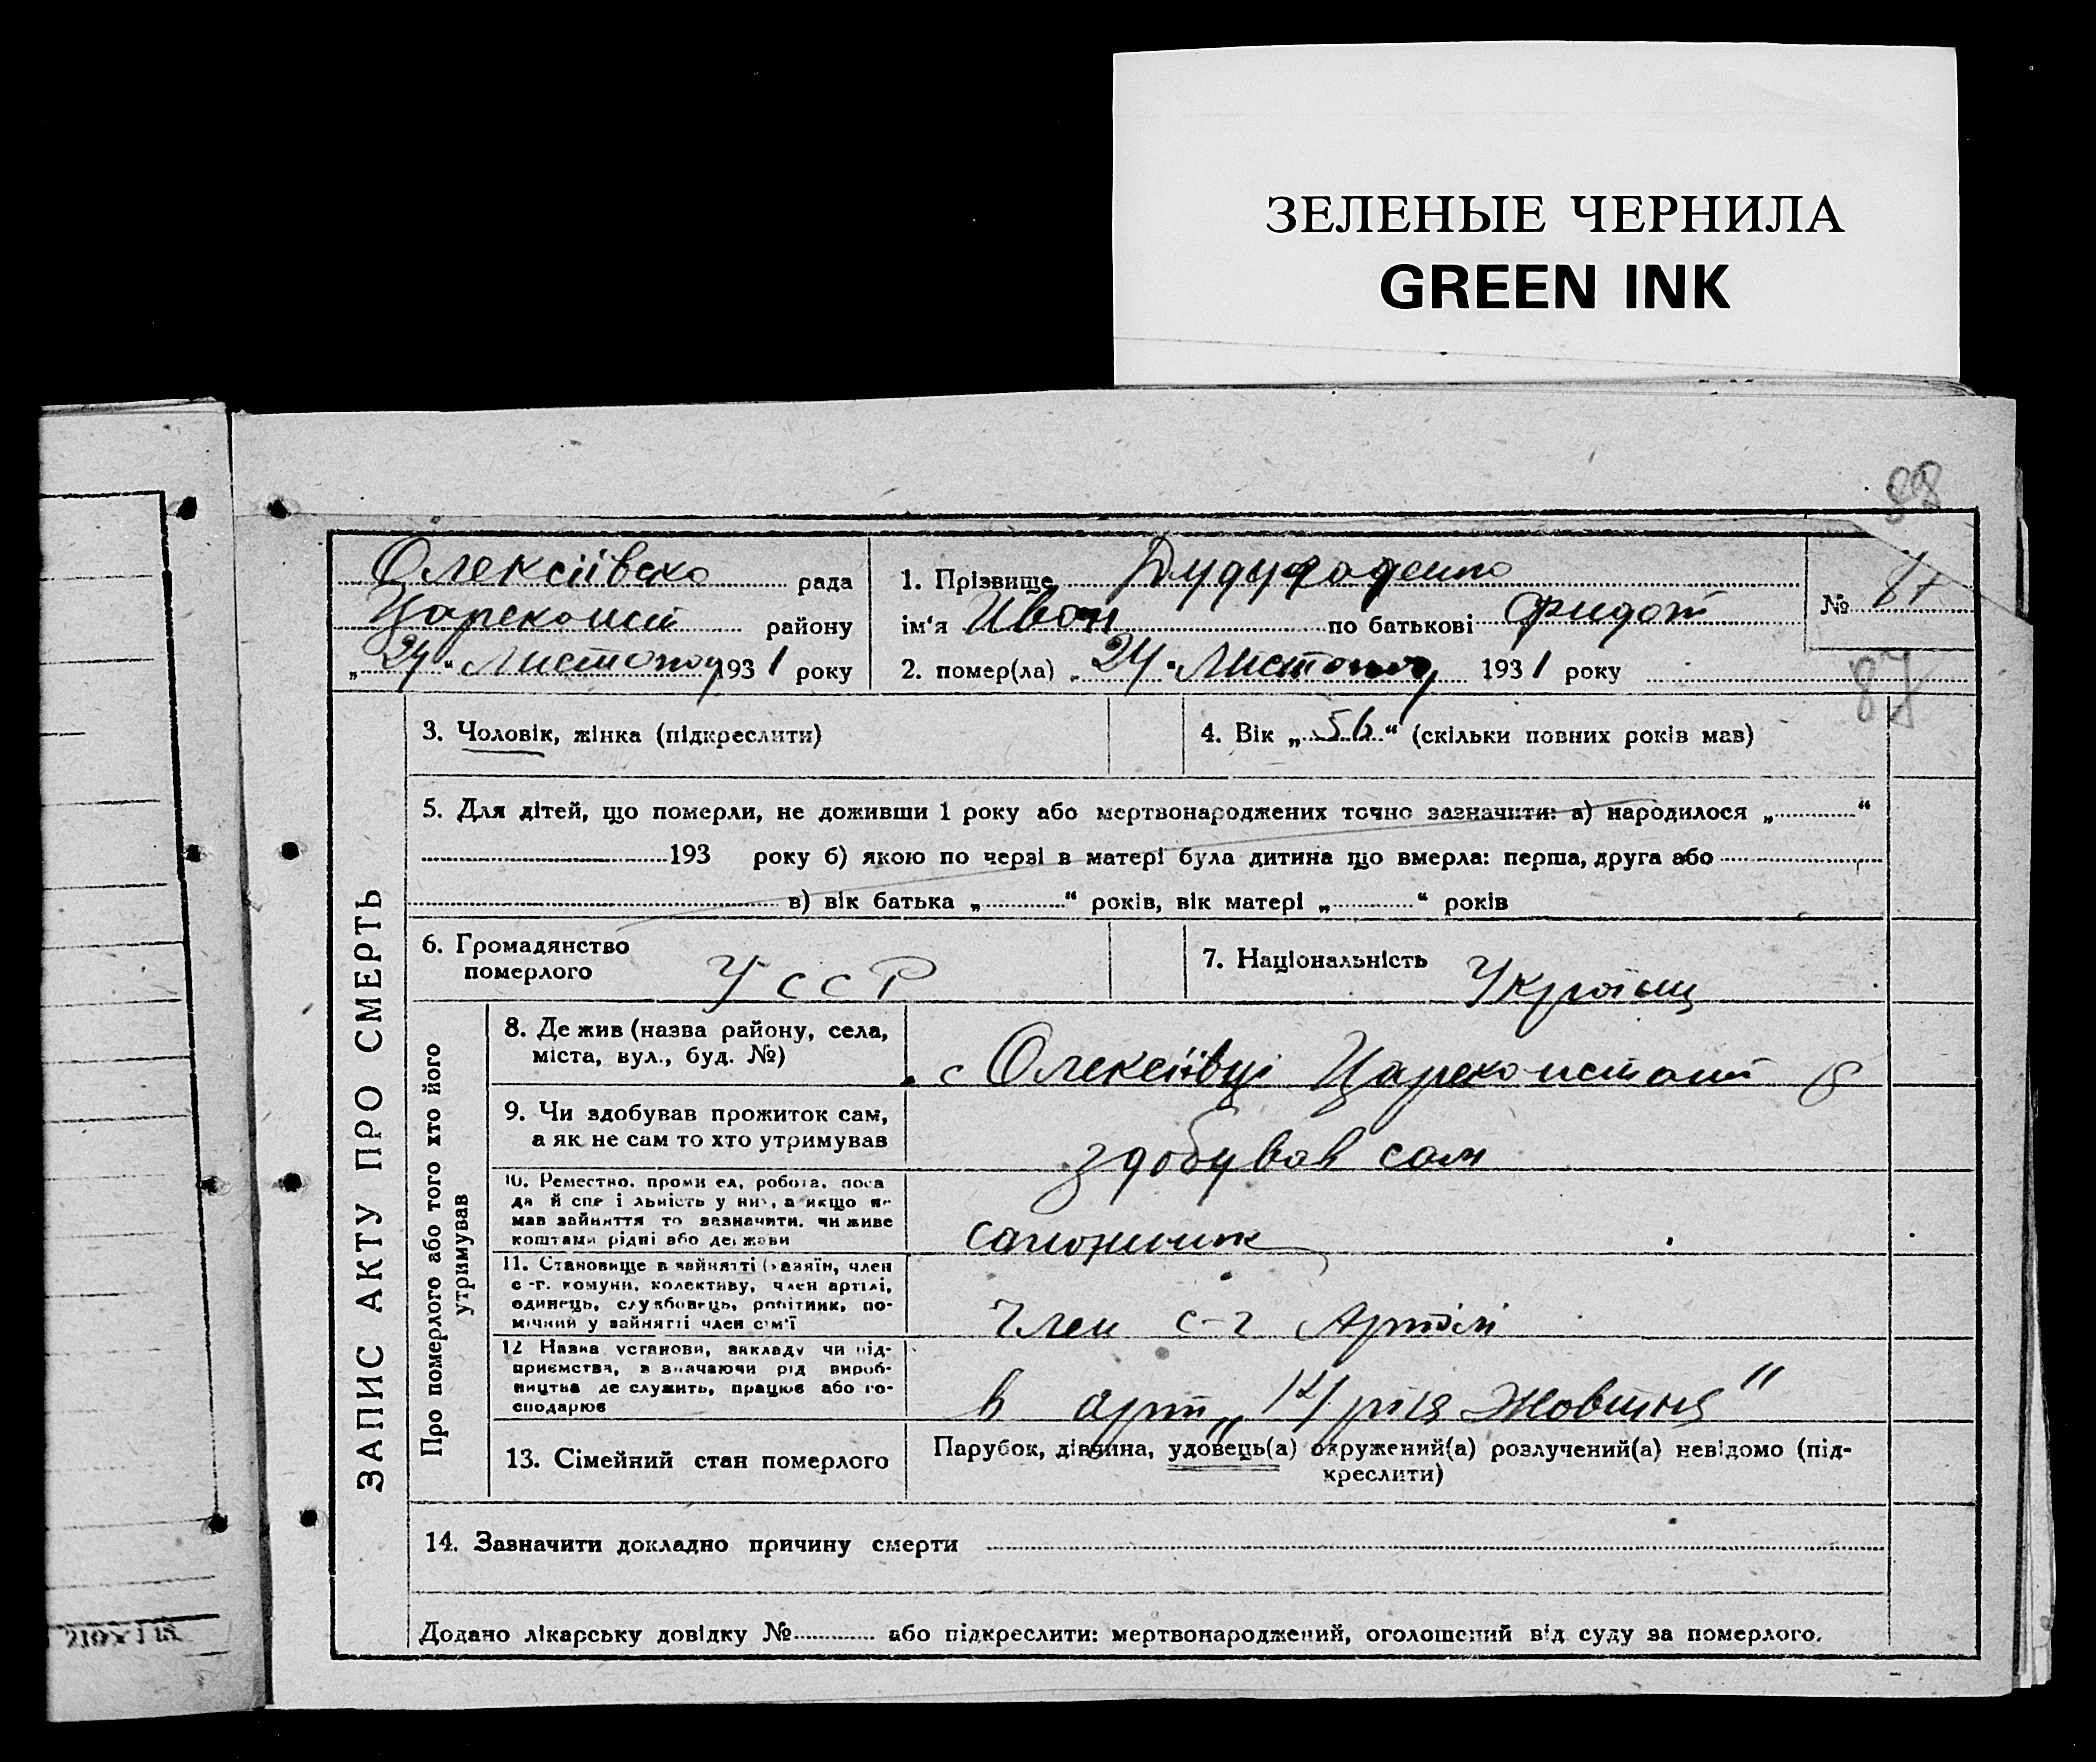 ЗЕЛЕНЫЕ ЧЕРНИЛА
GREEN INK
88
Олексіівска рада
Цареконст району
„24“ Листопад 1931 року
1. Прізвище
ім‘я Иван по батькові Фидот
2. помер(ла) „24“ Листопад 1931 року
№
87
ЗАПИС АКТУ ПРО СМЕРТЬ
3. Чоловік, жінка (підкреслити)
4. Вік „56“ (скільки повних років мав)
5. Для дітей, що померли, не доживши 1 року або мертвонароджених точно зазначити: а) народилося „ “
193 року б) якою по черзі в матері була дитина що вмерла: перша, друга або
в) вік батька „ “ років, вік матері „ “ років
6. Громадянство
померлого УССР
7. Національність Украінц
Про померлого або того хто його
утримував
8. Де жив (назва району, села,
міста, вул., буд. №)
с Олексіівці Цареконстант р
9. Чи здобував прожиток сам,
а як не сам то хто утримував
здобував сам
10. Ремество, проми ел, робота, поса
да й спе і льність у ни, а якщо не
мав зайняття то зазначити, чи живе
коштами рідні або держави
сапожник
11. Становище в зайнятті (хазяїн, член
с-г. комуни, колективу, член артілі,
одинець, службовець, робітник, по-
мічний у зайнятті член сім'ї
Член с-г Артілі
12 Назва установи, закладу чи під-
приємства, зазначаючи рід вироб-
ництва де служить, працює або го-
сподарює
в арт „14 річя Жовтня"
13. Сімейний стан померлого
Парубок, дівчина, удовець(а) одружений(а) розлучений(а) невідомо (під-
креслити)
14. Зазначити докладно причину смерти
Додано лікарську довідку № або підкреслити: мертвонароджений, оголошений від суду за померлого.